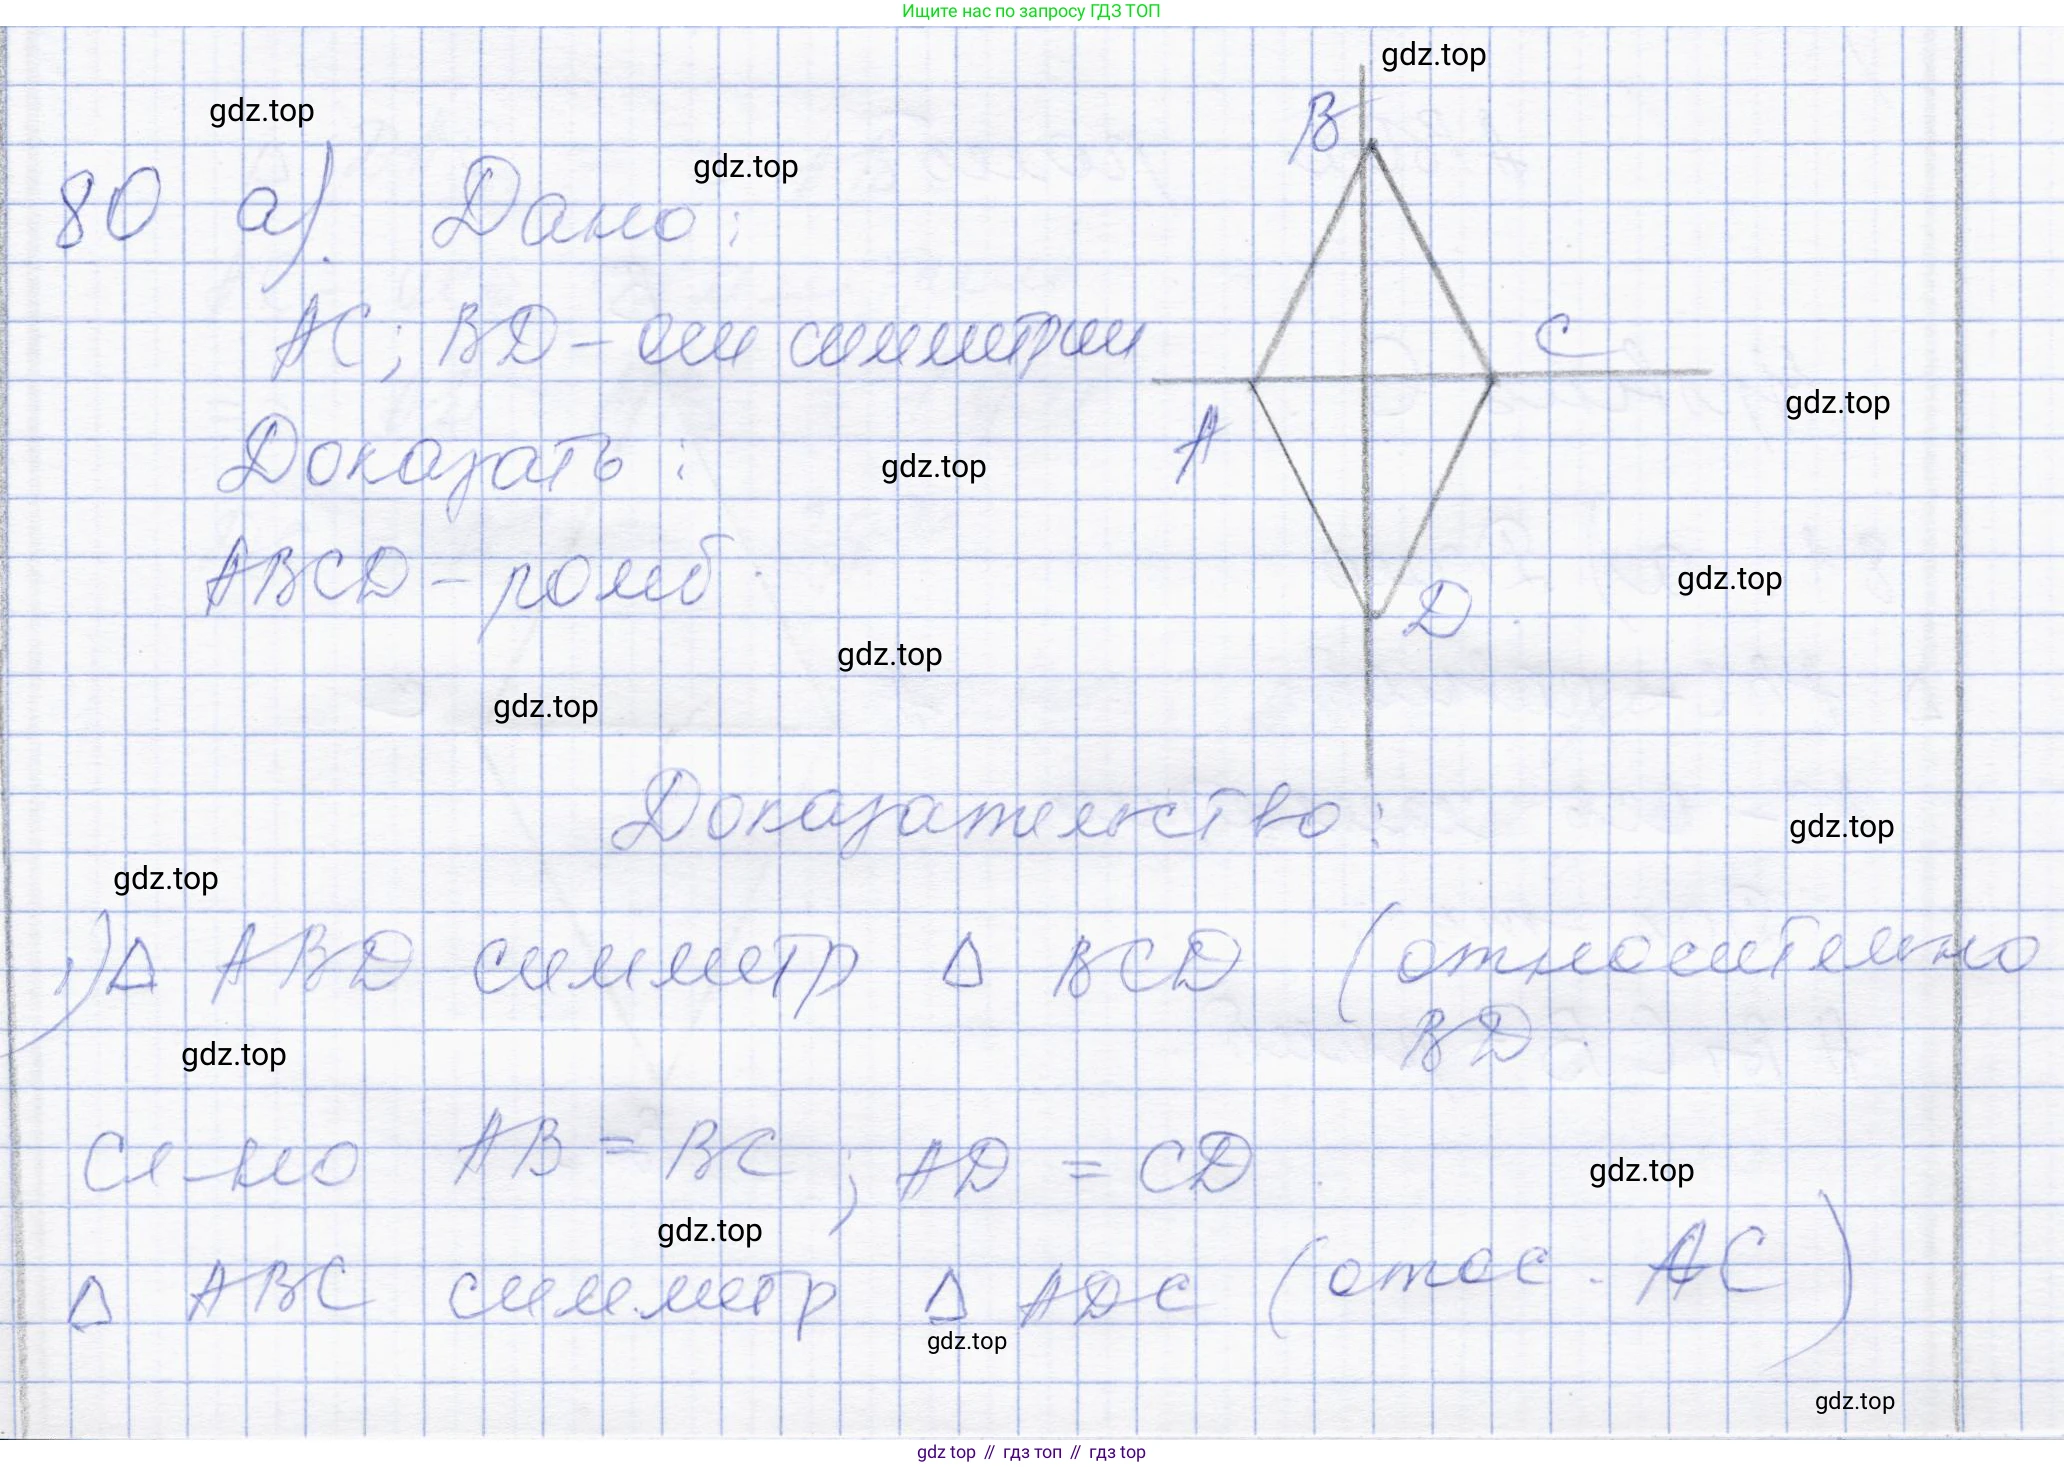 Ищите нас по запросу ГДЗ ТОП
gdz.top
gdz.top
gdz.top
B
80 а). Дано:
AC; BD - оси симметрии
C
gdz.top
Доказать:
gdz.top
A
ABCD - ромб.
gdz.top
D
gdz.top
gdz.top
Доказательство:
gdz.top
gdz.top
1) Δ ABD симметр Δ BCD (относительно
BD.
gdz.top
Сл-но AB = BC; AD = CD.
gdz.top
gdz.top
Δ ABC симметр Δ ADC (отос. AC)
gdz.top
gdz.top
gdz top // гдз топ // гдз top